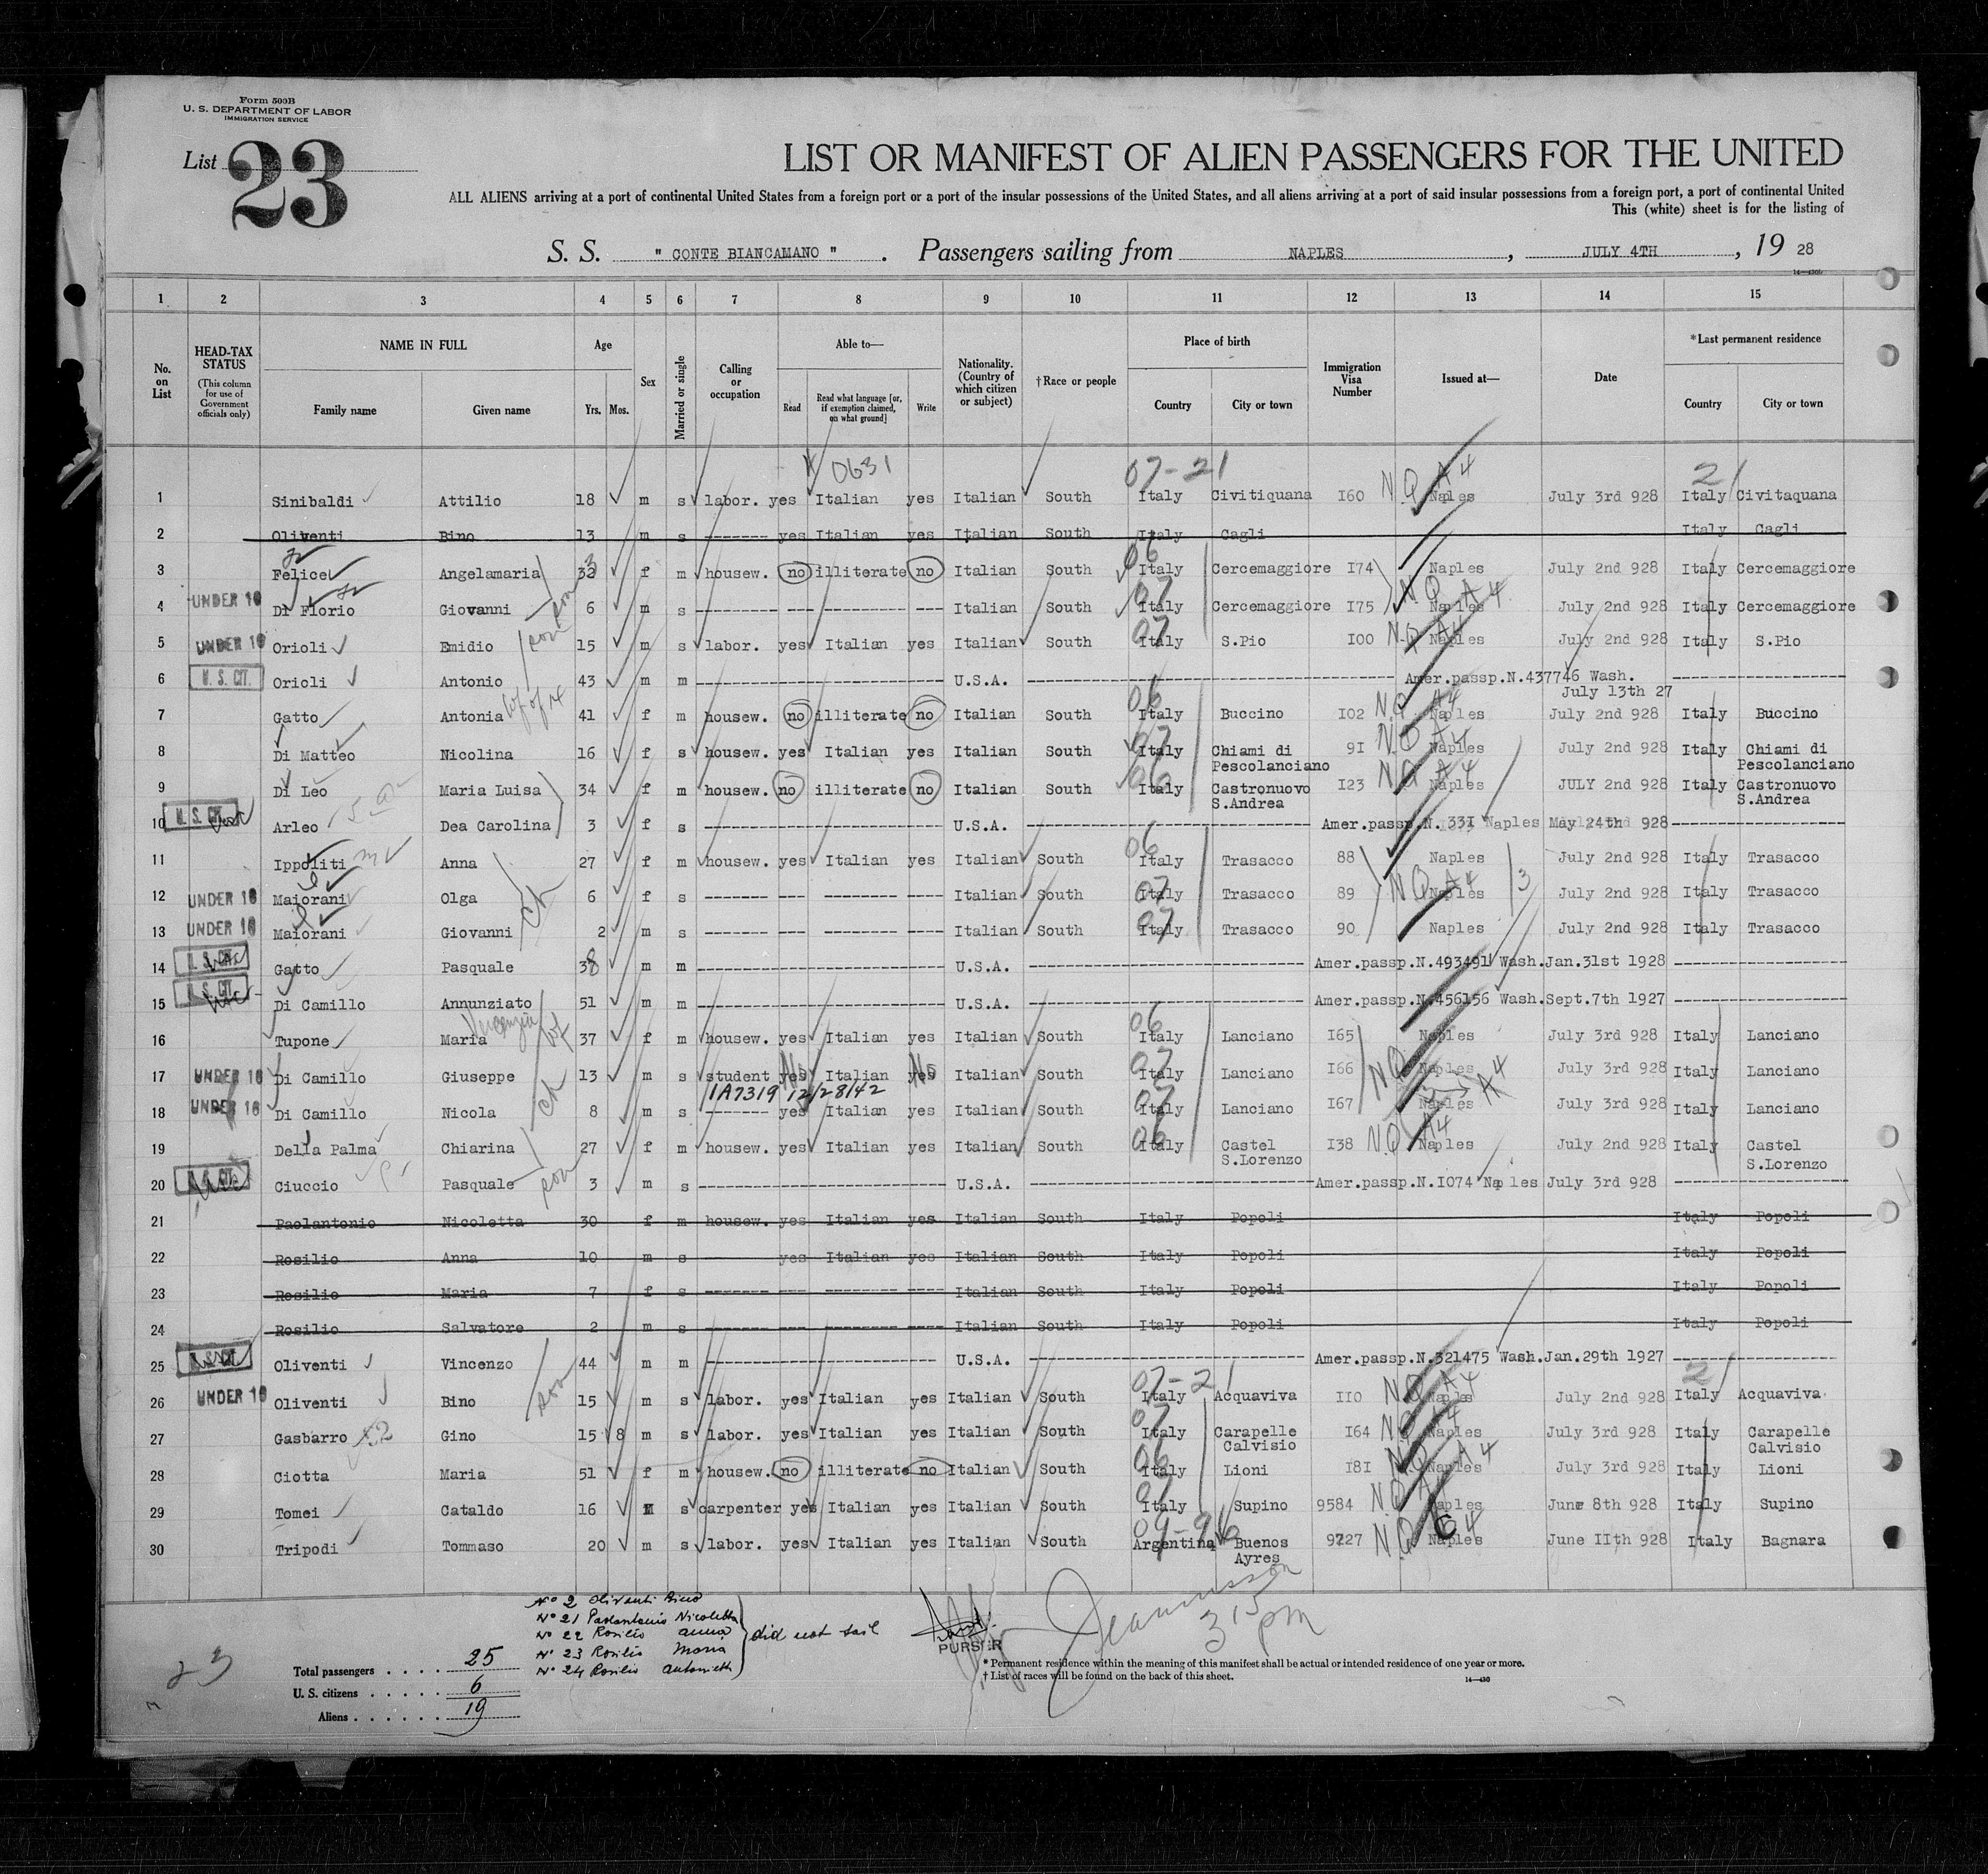 Form 500B
U. S. DEPARTMENT OF LABOR
IMMIGRATION SERVICE
List 23
LIST OR MANIFEST OF ALIEN PASSENGERS FOR THE UNITED
ALL ALIENS arriving at a port of continental United States from a foreign port or a port of the insular possessions of the United States, and all aliens arriving at a port of said insular possessions from a foreign port, a port of continental United
This (white) sheet is for the listing of
S. S. " CONTE BIANCAMANO " . Passengers sailing from NAPLES , JULY 4TH , 19 28
14—430b
1 2 3 4 5 6 7 8 9 10 11 12 13 14 15
No. on List
HEAD-TAX STATUS (This column for use of Government officials only)
NAME IN FULL
Family name Given name
Age
Yrs. Mos.
Sex
Married or single
Calling or occupation
Able to—
Read Read what language [or, if exemption claimed, on what ground] Write
Nationality. (Country of which citizen or subject)
†Race or people
Place of birth
Country City or town
Immigration Visa Number
Issued at—
Date
*Last permanent residence
Country City or town
0631 07-21 21
1 Sinibaldi Attilio 18 m s labor. yes Italian yes Italian South Italy Civitiquana I60 NQ A4 Naples July 3rd 928 Italy Civitaquana
2 Oliventi Bino 13 m s ------- yes Italian yes Italian South Italy Cagli Italy Cagli
3 Felice Angelamaria 32 3 f m housew. no illiterate no Italian South 06 Italy Cercemaggiore I74 Naples July 2nd 928 Italy Cercemaggiore
4 UNDER 16 Di Florio Giovanni son 6 m s ------- --- -------- ---- Italian South 07 Italy Cercemaggiore I75 NQ A4 Naples July 2nd 928 Italy Cercemaggiore
5 UNDER 16 Orioli Emidio son 15 m s labor. yes Italian yes Italian South 07 Italy S.Pio I00 NQ A4 Naples July 2nd 928 Italy S.Pio
6 U. S. CIT. Orioli Antonio 43 m m ---------------- U.S.A. ---------------- Amer.passp.N.437746 Wash. ----------------
July 13th 27
7 Gatto Antonia wf of 14 41 f m housew. no illiterate no Italian South 06 Italy Buccino I02 NQ A4 Naples July 2nd 928 Italy Buccino
8 Di Matteo Nicolina 16 f s housew. yes Italian yes Italian South 07 Italy Chiami di Pescolanciano 9I NQ A4 Naples July 2nd 928 Italy Chiami di Pescolanciano
9 Di Leo Maria Luisa 34 f m housew. no illiterate no Italian South 06 Italy Castronuovo S.Andrea I23 NQ A4 Naples JULY 2nd 928 Italy Castronuovo S.Andrea
10 U. S. CIT. Arleo Dea Carolina 3 f s ---------------- U.S.A. ---------------- Amer.passp.N. 33I Naples May 24th 928 ----------------
11 Ippoliti Anna 27 f m housew. yes Italian yes Italian South 06 Italy Trasacco 88 Naples July 2nd 928 Italy Trasacco
12 UNDER 16 Maiorani Olga ch 6 f s ------- --- -------- ---- Italian South 07 Italy Trasacco 89 NQ A4 Naples 3 July 2nd 928 Italy Trasacco
13 UNDER 16 Maiorani Giovanni 2 m s ------- --- -------- ---- Italian South 07 Italy Trasacco 90 Naples July 2nd 928 Italy Trasacco
14 U. S. CIT. Gatto Pasquale 38 m m ---------------- U.S.A. ---------------- Amer.passp.N.493491 Wash.Jan.31st 1928 ----------------
15 U. S. CIT. Di Camillo Annunziato 51 m m ---------------- U.S.A. ---------------- Amer.passp.N.456156 Wash.Sept.7th 1927 ----------------
16 Tupone Maria Vincenzia wf 37 f m housew. yes Italian yes Italian South 06 Italy Lanciano I65 Naples July 3rd 928 Italy Lanciano
17 UNDER 16 Di Camillo Giuseppe 13 m s student yes No Italian yes No Italian South 07 Italy Lanciano I66 NQ Naples July 3rd 928 Italy Lanciano
1A7319 12/28/42
18 UNDER 16 Di Camillo Nicola ch 8 m s ------- yes Italian yes Italian South 07 Italy Lanciano I67 A4 Naples July 3rd 928 Italy Lanciano
19 Della Palma Chiarina 27 f m housew. yes Italian yes Italian South 06 Italy Castel S.Lorenzo I38 NQ A4 Naples July 2nd 928 Italy Castel S.Lorenzo
20 U. S. CIT. Ciuccio Pasquale son 3 m s ---------------- U.S.A. ---------------- Amer.passp.N.I074 Naples July 3rd 928 ----------------
21 Paolantonio Nicoletta 30 f m housew. yes Italian yes Italian South Italy Popoli Italy Popoli
22 Rosilio Anna 10 m s ------- yes Italian yes Italian South Italy Popoli Italy Popoli
23 Rosilio Maria 7 f s ------- --- -------- ---- Italian South Italy Popoli Italy Popoli
24 Rosilio Salvatore 2 m s ------- --- -------- ---- Italian South Italy Popoli Italy Popoli
25 U. S. CIT. Oliventi Vincenzo 44 m m ---------------- U.S.A. ---------------- Amer.passp.N.321475 Wash.Jan.29th 1927 ----------------
26 UNDER 16 Oliventi Bino son 15 m s labor. yes Italian yes Italian South 07-21 Italy Acquaviva 110 NQ A4 Naples July 2nd 928 21 Italy Acquaviva
27 Gasbarro Gino 15 8 m s labor. yes Italian yes Italian South 07 Italy Carapelle Calvisio I64 NQ A4 Naples July 3rd 928 Italy Carapelle Calvisio
28 Ciotta Maria 51 f m housew. no illiterate no Italian South 06 Italy Lioni I8I NQ A4 Naples July 3rd 928 Italy Lioni
29 Tomei Cataldo 16 M s carpenter yes Italian yes Italian South 07 Italy Supino 9584 NQ Naples June 8th 928 Italy Supino
30 Tripodi Tommaso 20 m s labor. yes Italian yes Italian South Argentina Buenos Ayres 9227 NQ C4 Naples June IIth 928 Italy Bagnara
No 2 Oliventi Bino
No 21 Paolantonio Nicoletta
No 22 Rosilio Anna
No 23 Rosilio Maria
No 24 Rosilio Antonietta
did not sail
PURSER
315 pm
23
Total passengers . . . . 25
U. S. citizens . . . . . 6
Aliens . . . . . . 19
* Permanent residence within the meaning of this manifest shall be actual or intended residence of one year or more.
† List of races will be found on the back of this sheet.
14—430